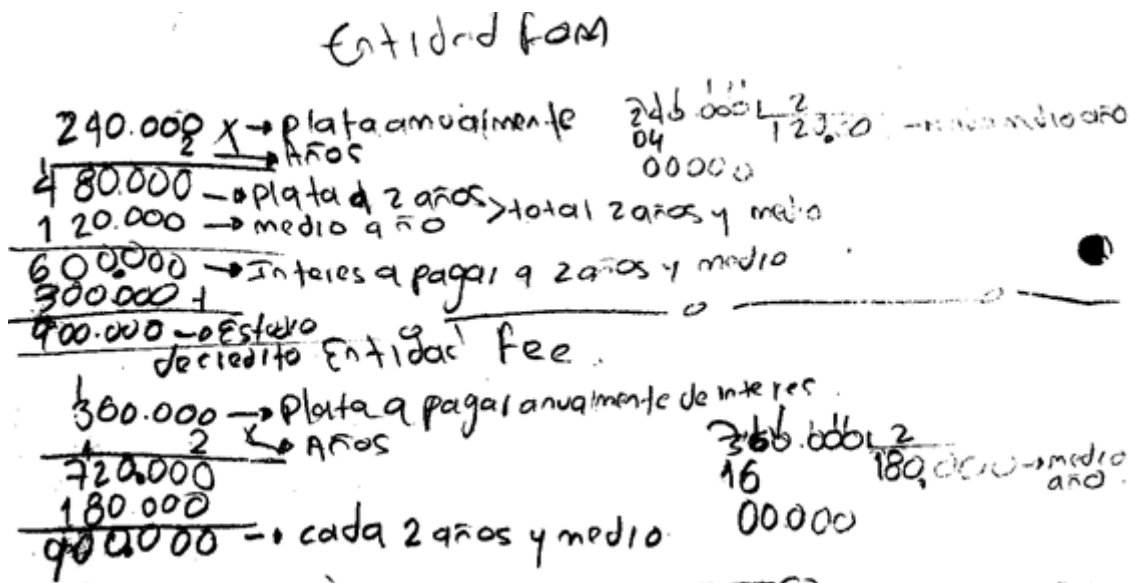 Entidad FOM
240.000 x → plata anualmente
2 → Años
480.000 → plata d 2 años > total 2 años y medio
120.000 → medio año
600.000 → Interes a pagar a 2 años y medio
300.000 +
900.000 → Estudio
de credito
240.000 2
04 120.000 → medio año
00000
Entidad Fee.
360.000 → Plata a pagar anualmente de interes
2 x → Años
720.000
180.000
900.000 → cada 2 años y medio
360.000 2
16 180.000 → medio
año.
00.000